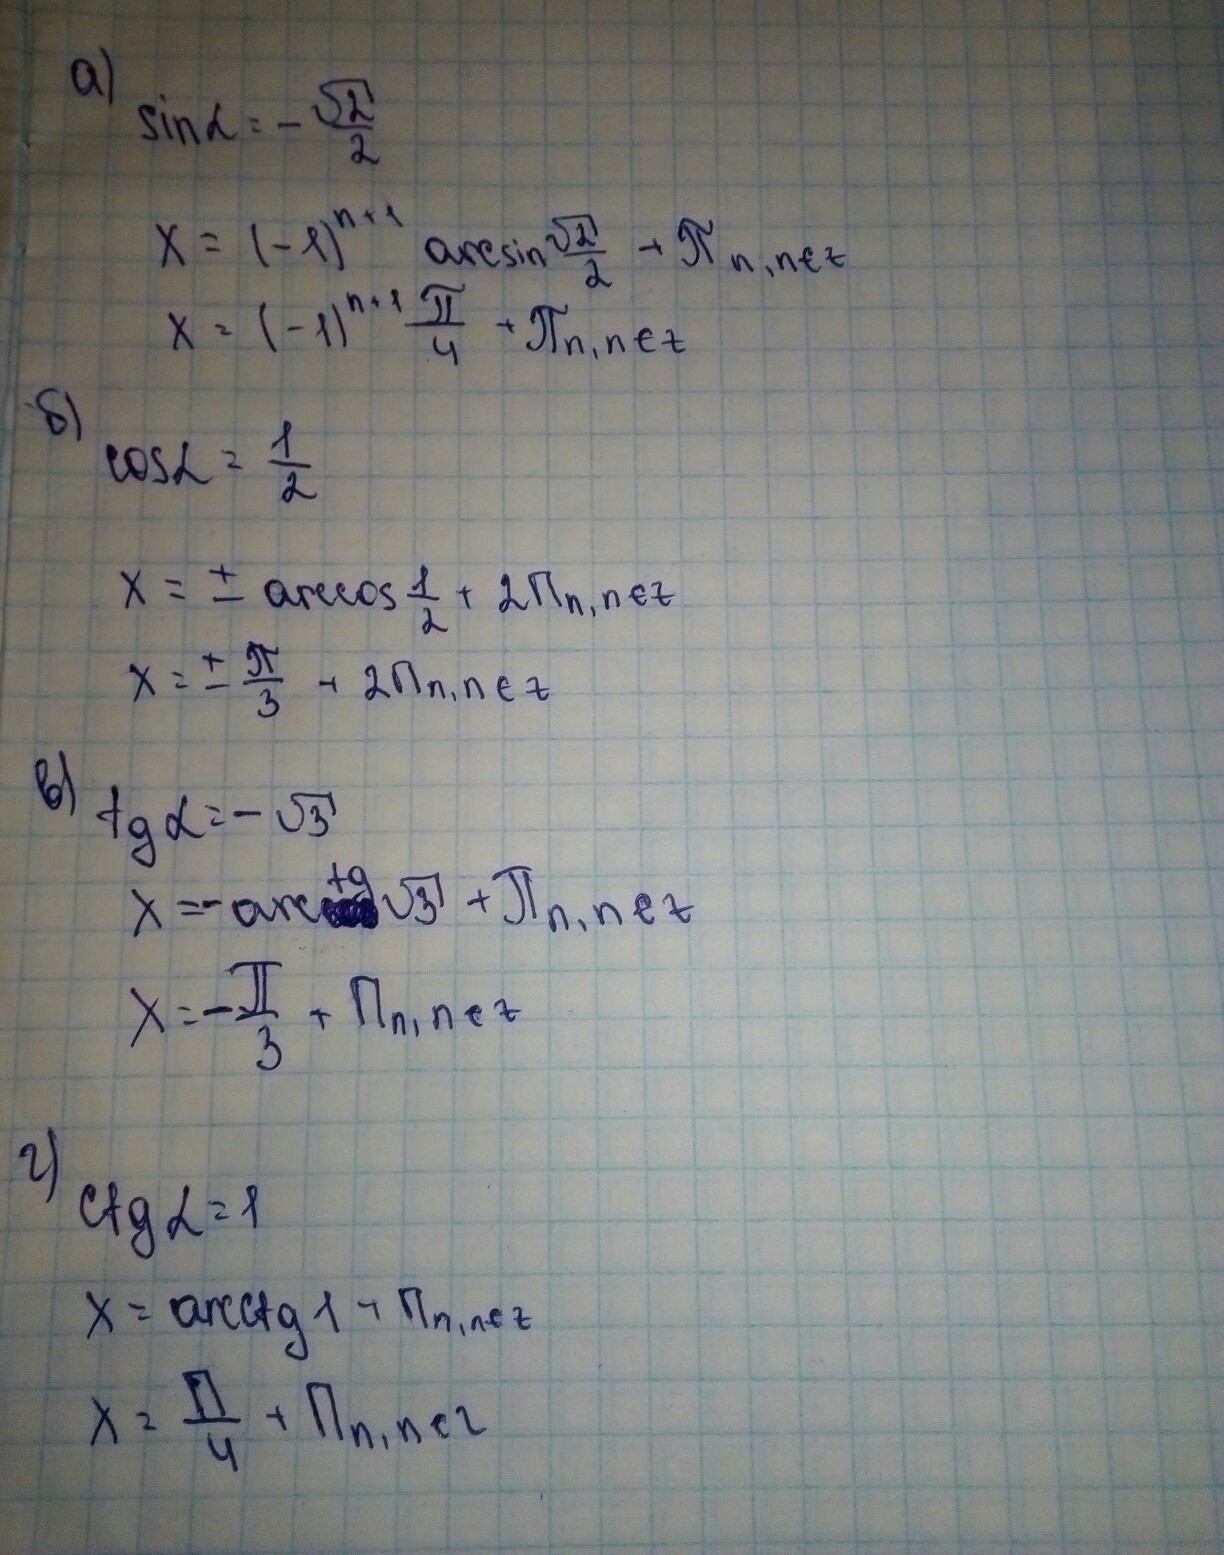 а)
sinα = -√2/2
x = (-1)^n+1 arcsin √2/2 + πn, n∈z
x = (-1)^n+1 π/4 + πn, n∈z
б)
cosα = 1/2
x = ± arccos 1/2 + 2πn, n∈z
x = ± π/3 + 2πn, n∈z
в)
tgα = -√3
x = -arctg √3 + πn, n∈z
x = -π/3 + πn, n∈z
г)
ctgα = 1
x = arcctg 1 + πn, n∈z
x = π/4 + πn, n∈z